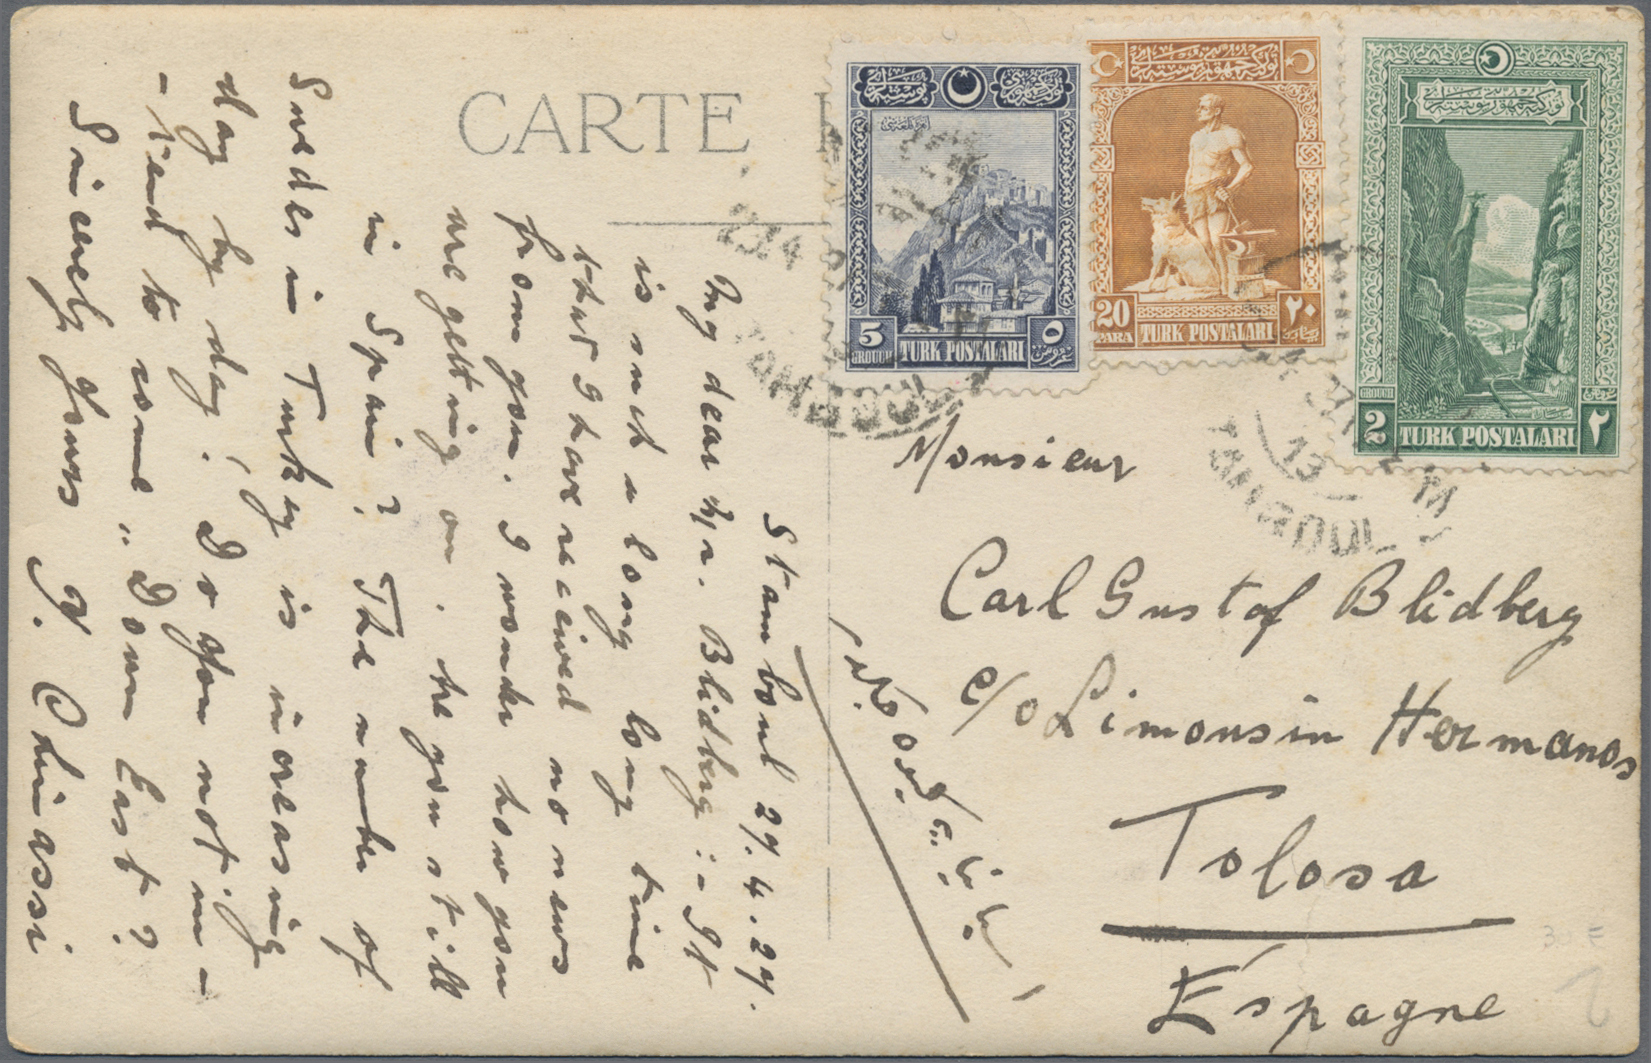 CARTE
5
GROUCH
TURK POSTALARI
٥
غروش
20
PARA
TURK POSTALARI
٢٠
2
GROUCH
TURK POSTALARI
٢
Stamboul 29.4.29.
My dear Mr. Blidberg :- It
is such a long long time
that I have received no news
from you. I wonder how you
are getting on. Are you still
in Spain? The number of
Swedes in Turkey is increasing
day by day! Do you not in-
-tend to come "Down East"?
Sincerely yours
Monsieur
Carl Gustaf Blidberg
c/o Limousin Hermanos
Tolosa
Espagne